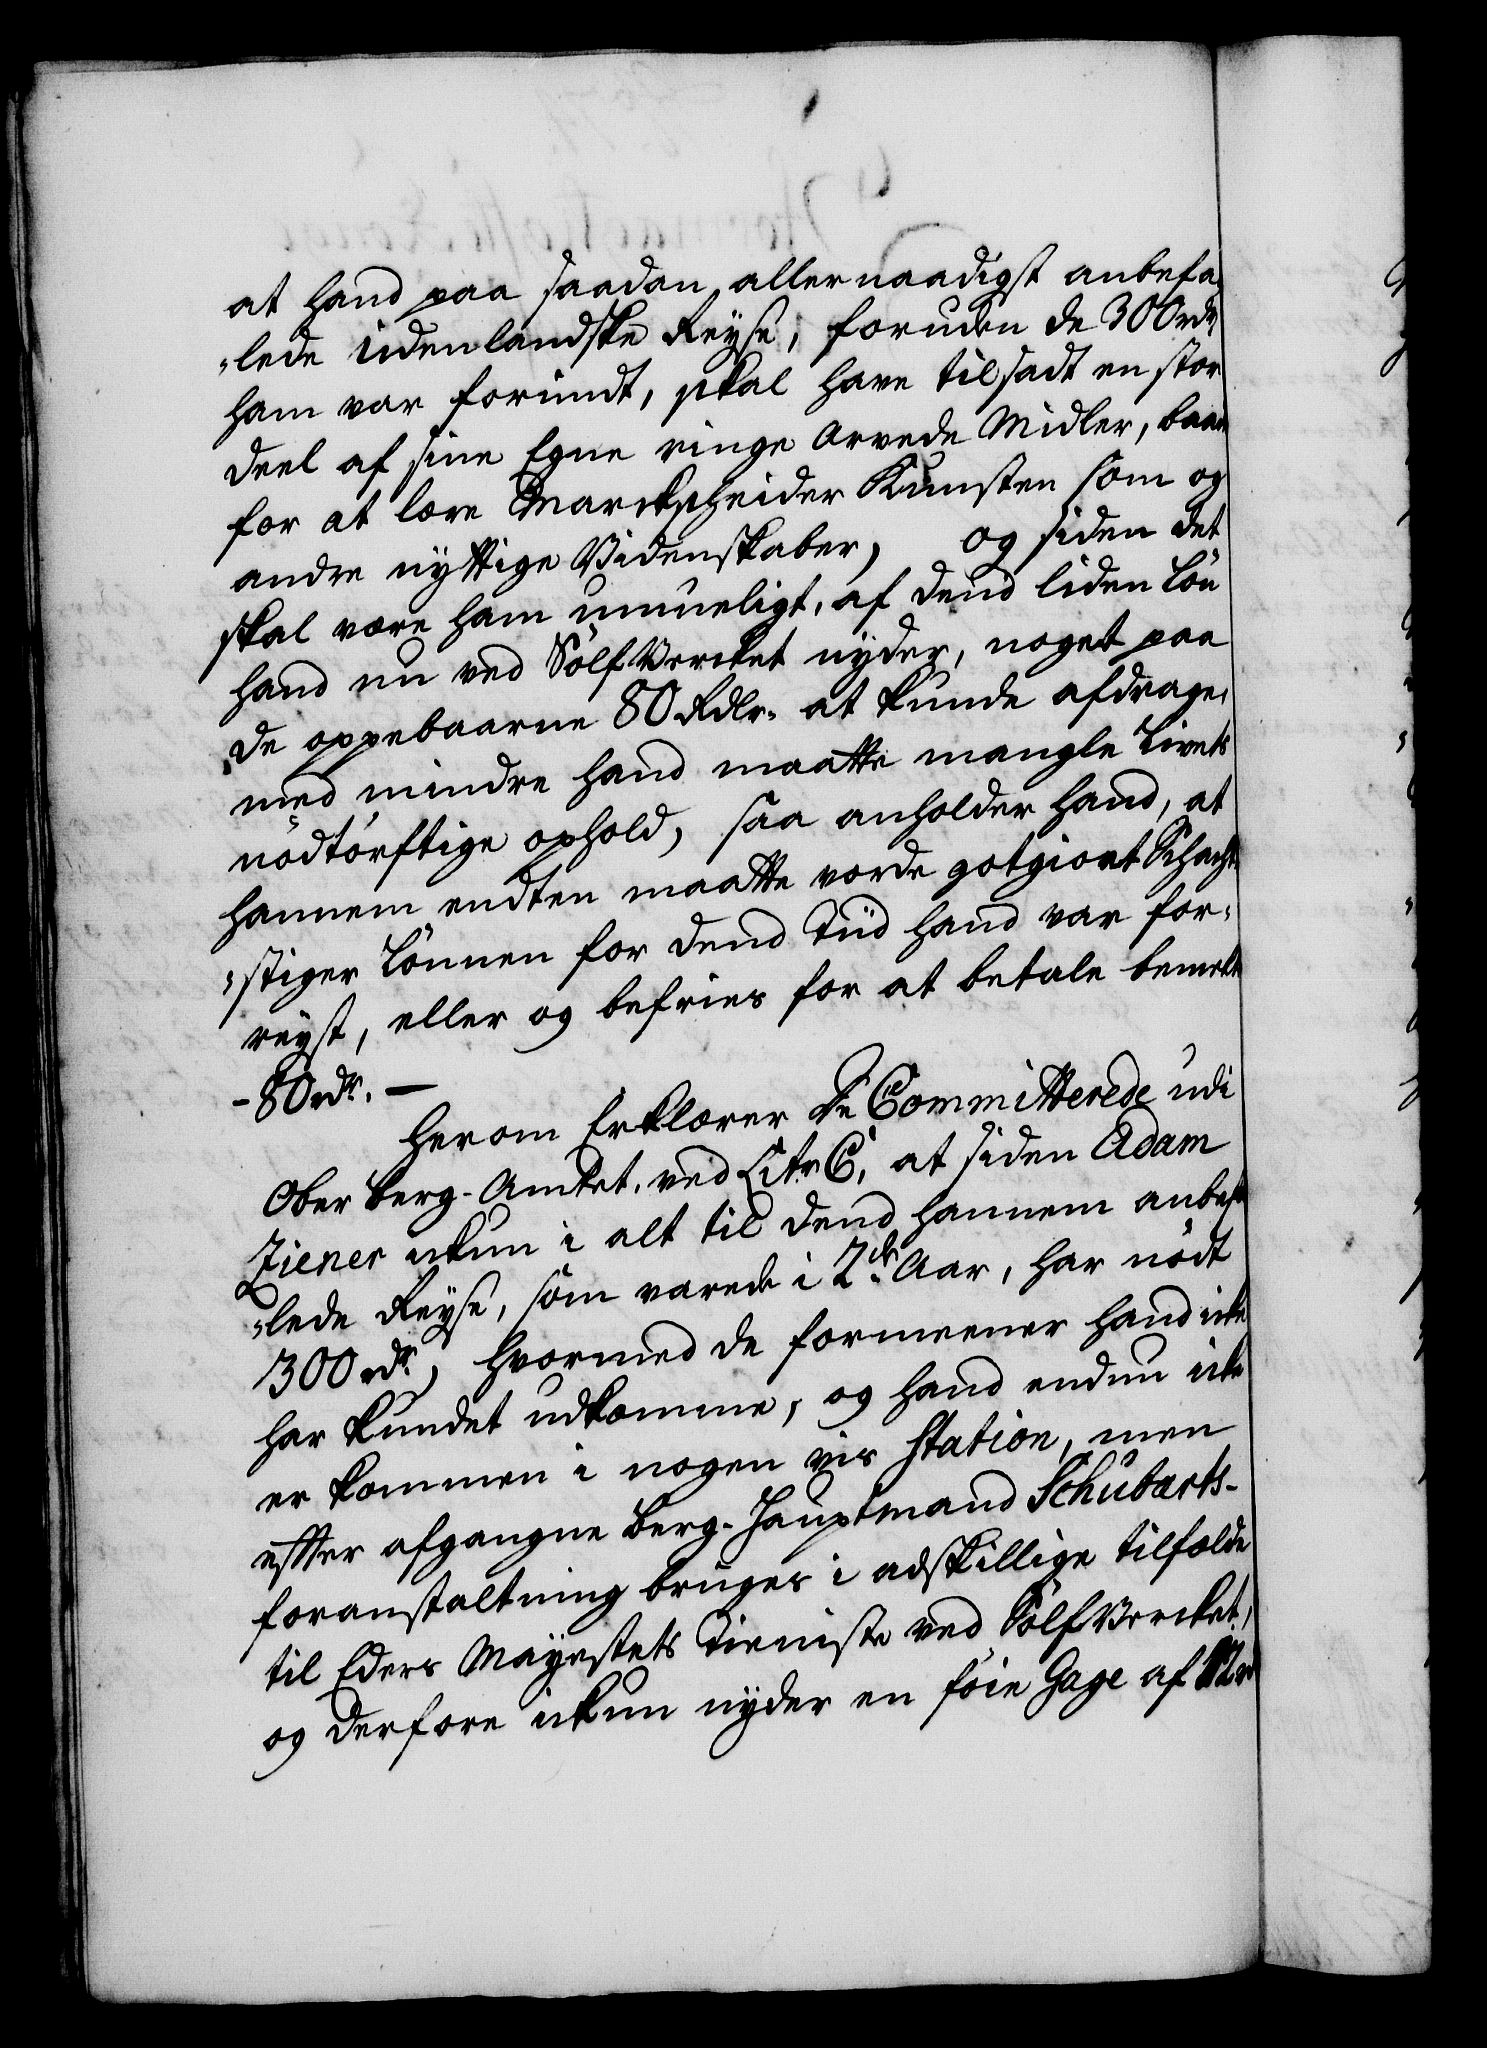 at hand paa saadan allernaadigst anbefa-
„lede udenlandske Reyse, foruden de 300 rdr
ham var forundt, skal have tilsadt en stor
deel af sine Egne ringe arvede Midler, baade
for at lære Marckscheider Kunsten som og
andre nyttige Videnskaber, og siden det
skal være ham umueligt, af dend liden Løn
hand nu ved SølfVercket nyder, noget paa
de oppebaarne 80 Rdlr. at kunde afdrage,
med mindre hand maatte mangle Livets
nødtørftige ophold, saa anholder hand, at
hannem endten maatte vorde gotgiort Schacht
„stiger Lønnen for dend Tiid hand var for-
reyst, eller og befries for at betale bemelte
- 80 rdr. —
Herom Erklærer De Committerede udi
Ober Berg-Amtet, ved Litr C, at siden Adam
Ziener ickun i alt til dend hannem anbefa
„lede Reyse, som varede i 2de Aar, har nødt
300 rdr, hvormed de formeener hand icke
har kundet udkomme, og hand endnu icke
er kommen i nogen vis Station, men
efter afgangne Berg-Hauptmand Schubarts-
foranstaltning bruges i adskillige tilfælde
til Eders Mayestets Tieniste ved SølfVercket,
og derfore ickun nyder en føie Gage af 12 rd